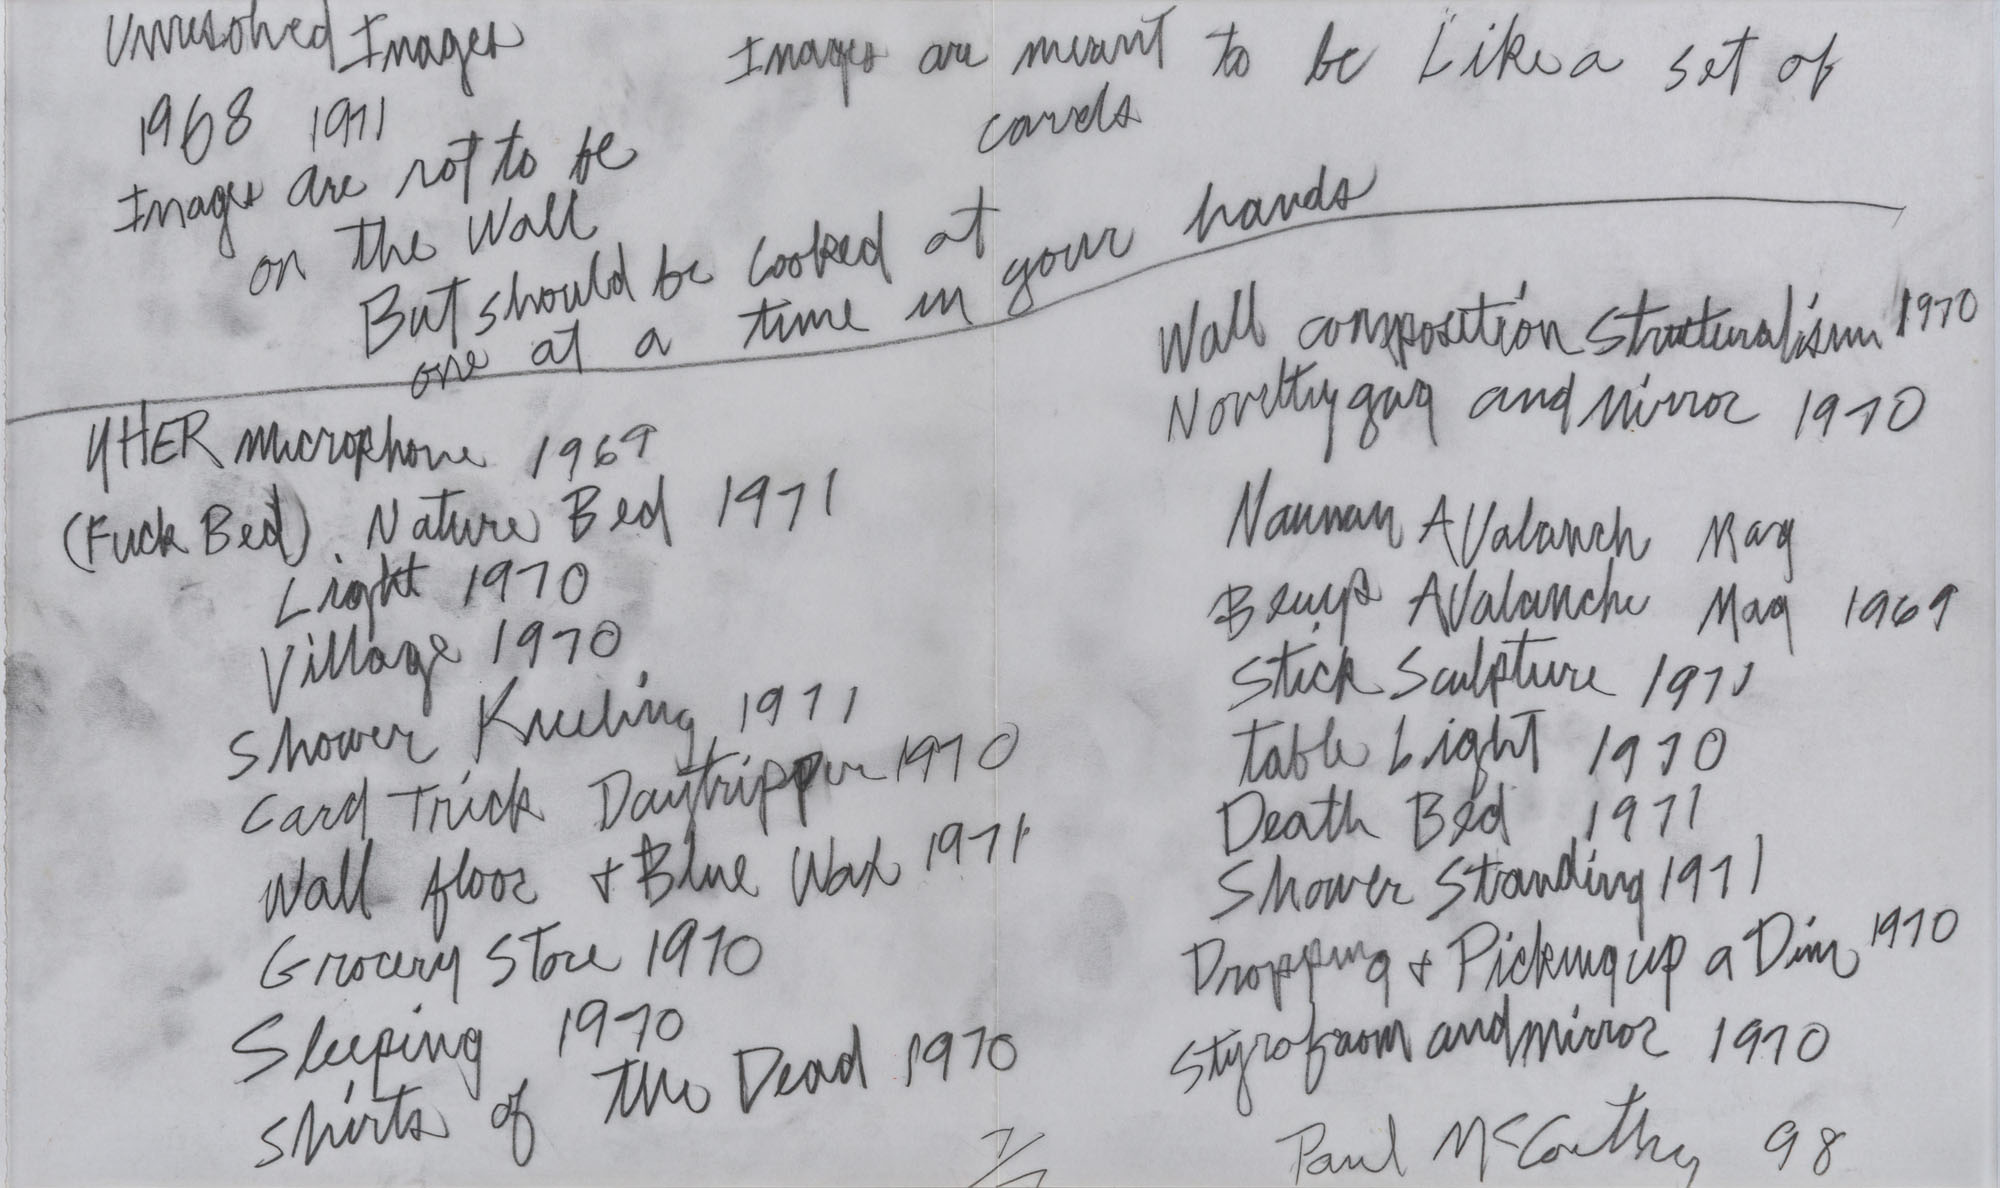 Unresolved Images
1968 1971
Images are not to be
on the Wall
But should be looked at
one at a time in your hands
Images are meant to be Like a set of
cards
YHER Microphone 1969
(Fuck Bed). Nature Bed 1971
Light 1970
Village 1970
Shower Kneeling 1971
Card Trick Daytripper 1970
Wall floor + Blue Wax 1971
Grocery Store 1970
Sleeping 1970
Shirts of the Dead 1970
Wall composition Structuralism 1970
Novelty gag and Mirror 1970
Nauman AValanch Mag
Beuys AValanche Mag 1969
Stick Sculpture 1971
Table Light 1970
Death Bed 1971
Shower Standing 1971
Dropping + Picking up a Dim 1970
Styrofaom and mirror 1970
Paul McCarthy 98